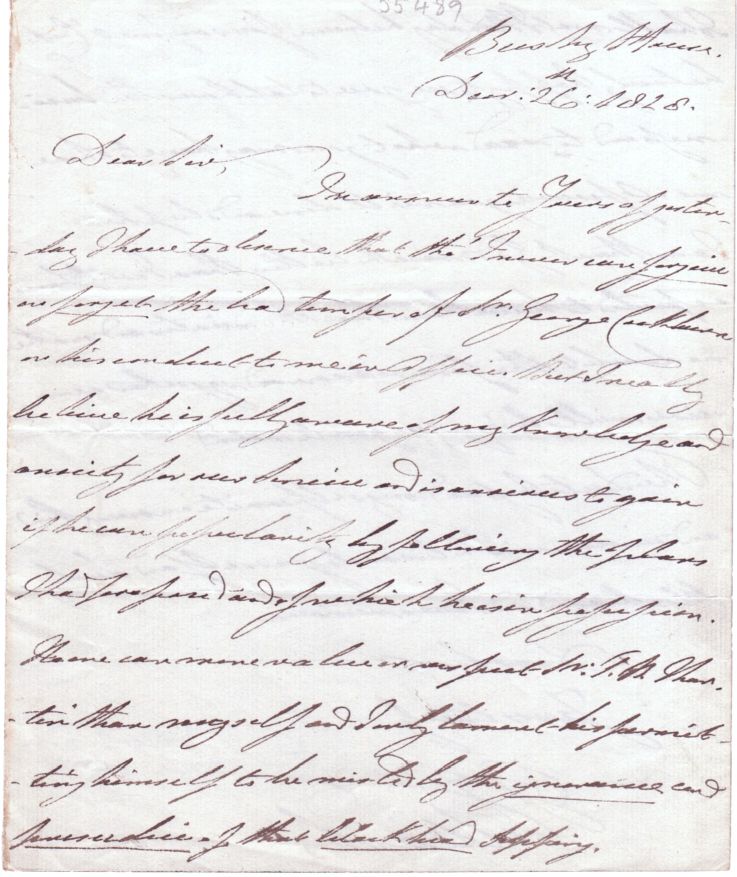 55489
Bushy House.
Decr: 26th: 1828.
Dear Sir,
In answer to Yours of yester-
-day I have to observe that tho' I never can forgive
or forget the bad temper of Sr. George Cockburn
or his conduct to me in Office But I really
believe he is fully aware of my knowledge and
anxiety for our Service and is anxious to gain
if he can popularity by following the plans
I had proposed and of which he is in possession.
None can more value or respect Sr. T. B. Mar-
-tin than myself and I only lament his permit-
-ting himself to be misled by the ignorance and
prejudice of that blockhead Seppings.